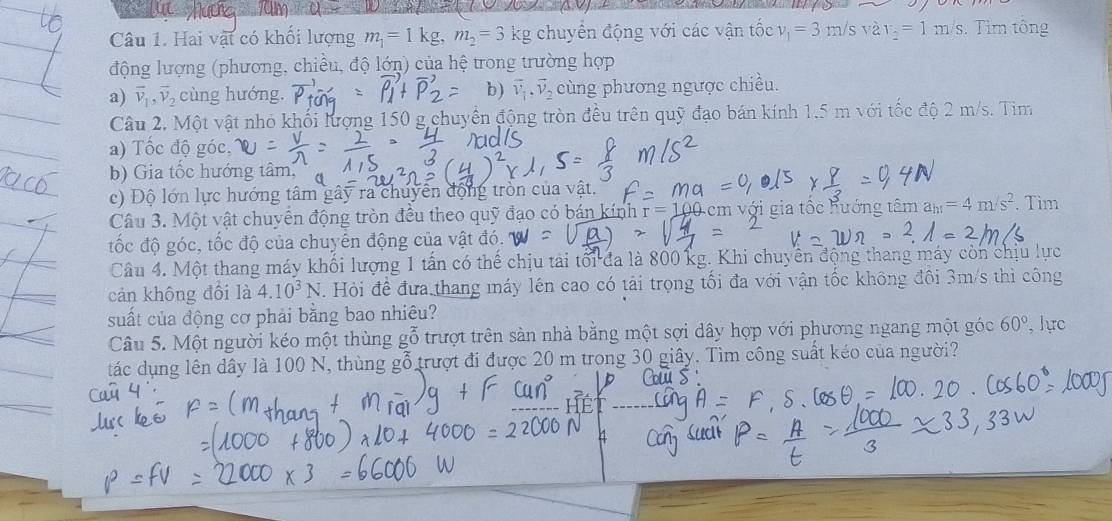 Câu 1. Hai vật có khối lượng m₁ = 1 kg, m₂ = 3 kg chuyển động với các vận tốc v₁ = 3 m/s và v₂ = 1 m/s. Tìm tổng
động lượng (phương, chiều, độ lớn) của hệ trong trường hợp
a) v⃗₁, v⃗₂ cùng hướng. P⃗ tổng = P⃗₁ + P⃗₂ = b) v⃗₁, v⃗₂ cùng phương ngược chiều.
Câu 2. Một vật nhỏ khối lượng 150 g chuyển động tròn đều trên quỹ đạo bán kính 1,5 m với tốc độ 2 m/s. Tìm
a) Tốc độ góc, w = v/r = 2/1,5 = 4/3 rad/s
b) Gia tốc hướng tâm, a = w²r = (4/3)² x 1,5 = 8/3 m/s²
c) Độ lớn lực hướng tâm gây ra chuyển động tròn của vật. F = ma = 0,015 x 8/3 = 0,4N
Câu 3. Một vật chuyển động tròn đều theo quỹ đạo có bán kính r = 100 cm với gia tốc hướng tâm aₕₜ = 4 m/s². Tìm
tốc độ góc, tốc độ của chuyển động của vật đó. w = √(a/r) = √(4/1) = 2 v = wr = 2.1 = 2m/s
Câu 4. Một thang máy khối lượng 1 tấn có thể chịu tải tối đa là 800 kg. Khi chuyển động thang máy còn chịu lực
cản không đổi là 4.10³ N. Hỏi để đưa thang máy lên cao có tải trọng tối đa với vận tốc không đổi 3m/s thì công
suất của động cơ phải bằng bao nhiêu?
Câu 5. Một người kéo một thùng gỗ trượt trên sàn nhà bằng một sợi dây hợp với phương ngang một góc 60°, lực
tác dụng lên dây là 100 N, thùng gỗ trượt đi được 20 m trong 30 giây. Tìm công suất kéo của người?
HẾT
câu 4:
lực kéo F = (m thang + m tải)g + F cản
= (1000 + 800) x 10 + 4000 = 22000 N
P = FV = 22000 x 3 = 66000 W
Câu 5:
Công A = F.S.cosθ = 100.20.cos60° = 1000J
Công suất P = A/t = 1000/3 ≈ 33,33W